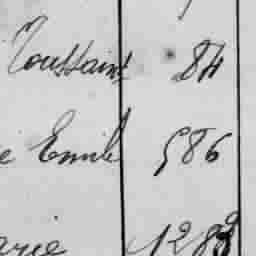 Toussaint 84
e Emile 586
arie 1289